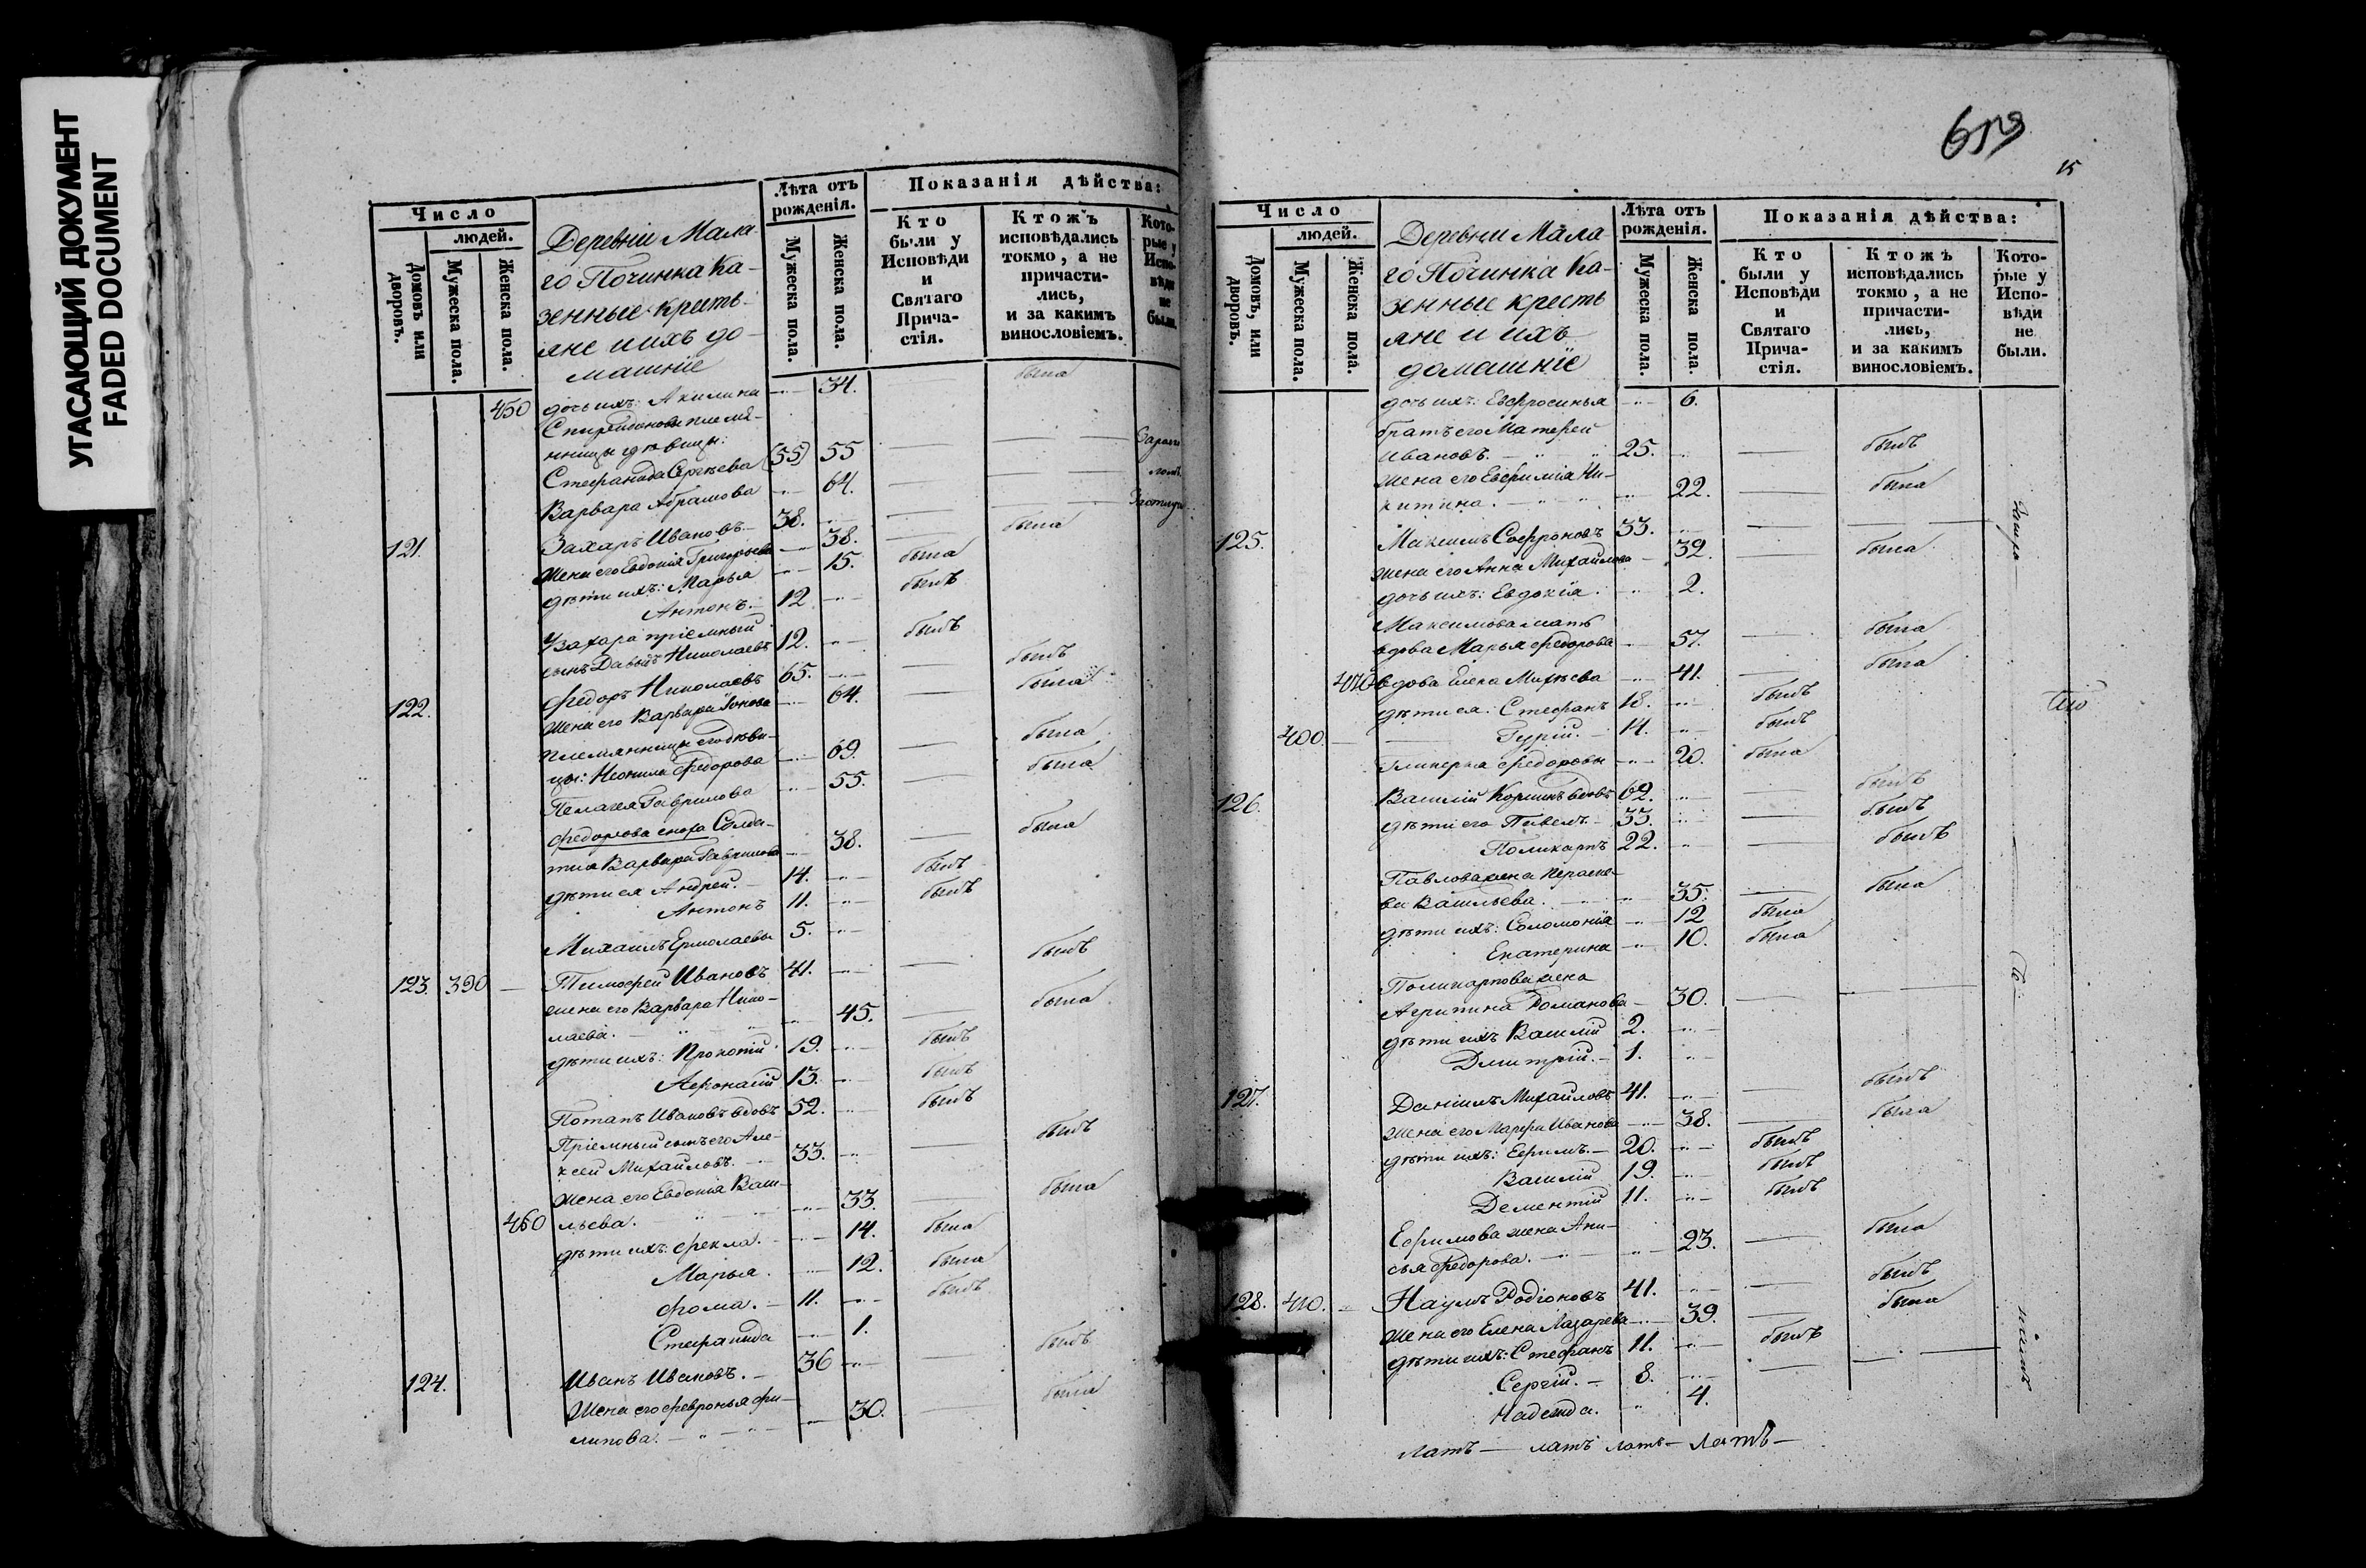 УГАСАЮЩИЙ ДОКУМЕНТ
FADED DOCUMENT
Число
людей.
Домовъ или дворовъ.
Мужеска пола.
Женска пола.
Деревни Мала-
го Починка Ка-
зенные кресть-
яне и ихъ до-
машніе
Лѣта отъ рожденія.
Мужеска пола.
Женска пола.
Показанія дѣйства:
Кто были у Исповѣди и Святаго Прича- стія.
Ктожъ исповѣдались токмо, а не причасти- лись, и за какимъ винословіемъ.
Кото- рые у Испо- вѣди не были.
450 дочь ихъ: Акилина 34. была
Спиридоновы племя-
нницы дѣвицы:
Стефанида Сергѣева (55) 55
Варвара Абрамова 64.
121. Захаръ Ивановъ 38.
Жена его Евдокія Григорьева 38. была
дѣти ихъ: Марья 15. была
Антонъ. 12 былъ
У Захара пріемный
сынъ Давыдъ Николаевъ 12. былъ
122. Федоръ Николаевъ 65. былъ
Жена его Варвара Іонова 64. была
племянницы его дѣви-
цы: Неонила Федорова 69. была
Пелагея Гаврилова 55. была
Федорова сноха Солда-
тка Варвара Гаврилова 38. была
дѣти ея Андрей. 14. былъ
Антонъ 11. былъ
Михаилъ Ермолаевъ 5.
123. 390 Тимофей Ивановъ 41. былъ
жена его Варвара Нико-
лаева. 45. была
дѣти ихъ: Прокопій 19. былъ
Афонасій 13. былъ
Потапъ Ивановъ вдовъ 52. былъ
Пріемный сынъ его Але-
ксей Михайловъ. 33. былъ
Жена его Евдокія Васи-
460 льева. 33. была
дѣти ихъ: Фекла. 14. была
Марья. 12. была
Фома. 11. былъ
Стефанида 1.
124. Иванъ Ивановъ. 36 былъ
Жена его Февронья Фи-
липова. 30. была
15
Число
людей.
Домовъ, или дворовъ.
Мужеска пола.
Женска пола.
Деревни Мала-
го Починка Ка-
зенные кресть
яне и ихъ
домашніе
Лѣта отъ рожденія.
Мужеска пола.
Женска пола.
Показанія дѣйства:
Кто были у Исповѣди и Святаго Прича- стія.
Ктожъ исповѣдались токмо, а не причасти- лись, и за какимъ винословіемъ.
Кото- рые у Испо- вѣди не были.
дочь ихъ: Евфросинья 6.
братъ его Матфей
Ивановъ. 25. былъ
Жена его Евфимія Ни-
китина. 22. была
125. Максимъ Софроновъ 33.
жена его Анна Михайлова 39. была
дочь ихъ: Евдокія. 2.
Максимова мать
вдова Марья Федорова 57. была
470 вдова Елена Михѣева 41. была
дѣти ея: Стефанъ 18. былъ
400. Гурій. 14. былъ
Гликерья Федорова 20. была
126. Василій вдовъ 62. былъ
дѣти его Павелъ. 33. былъ
Поликарпъ 22. былъ
Павлова жена Параске-
ва Васильева. 35. была
дѣти ихъ: Соломонія 12 была
Екатерина 10. была
Поликарпова жена
Агрипина Романова 30.
дѣти ихъ Василій 2.
Дмитрій. 1.
127. Даніилъ Михайловъ 41. былъ
Жена его Марфа Иванова 38. была
дѣти ихъ: Ефимъ. 20. былъ
Василій 19. былъ
Дементій 11. былъ
Ефимова жена Ани-
сья Федорова. 23. была
128. 410. Наумъ Родіоновъ 41. былъ
Жена его Елена Лазарева 39. была
дѣти ихъ: Стефанъ 11. былъ
Сергій. 8.
Надежда. 4.
латъ — латъ латъ — латъ —